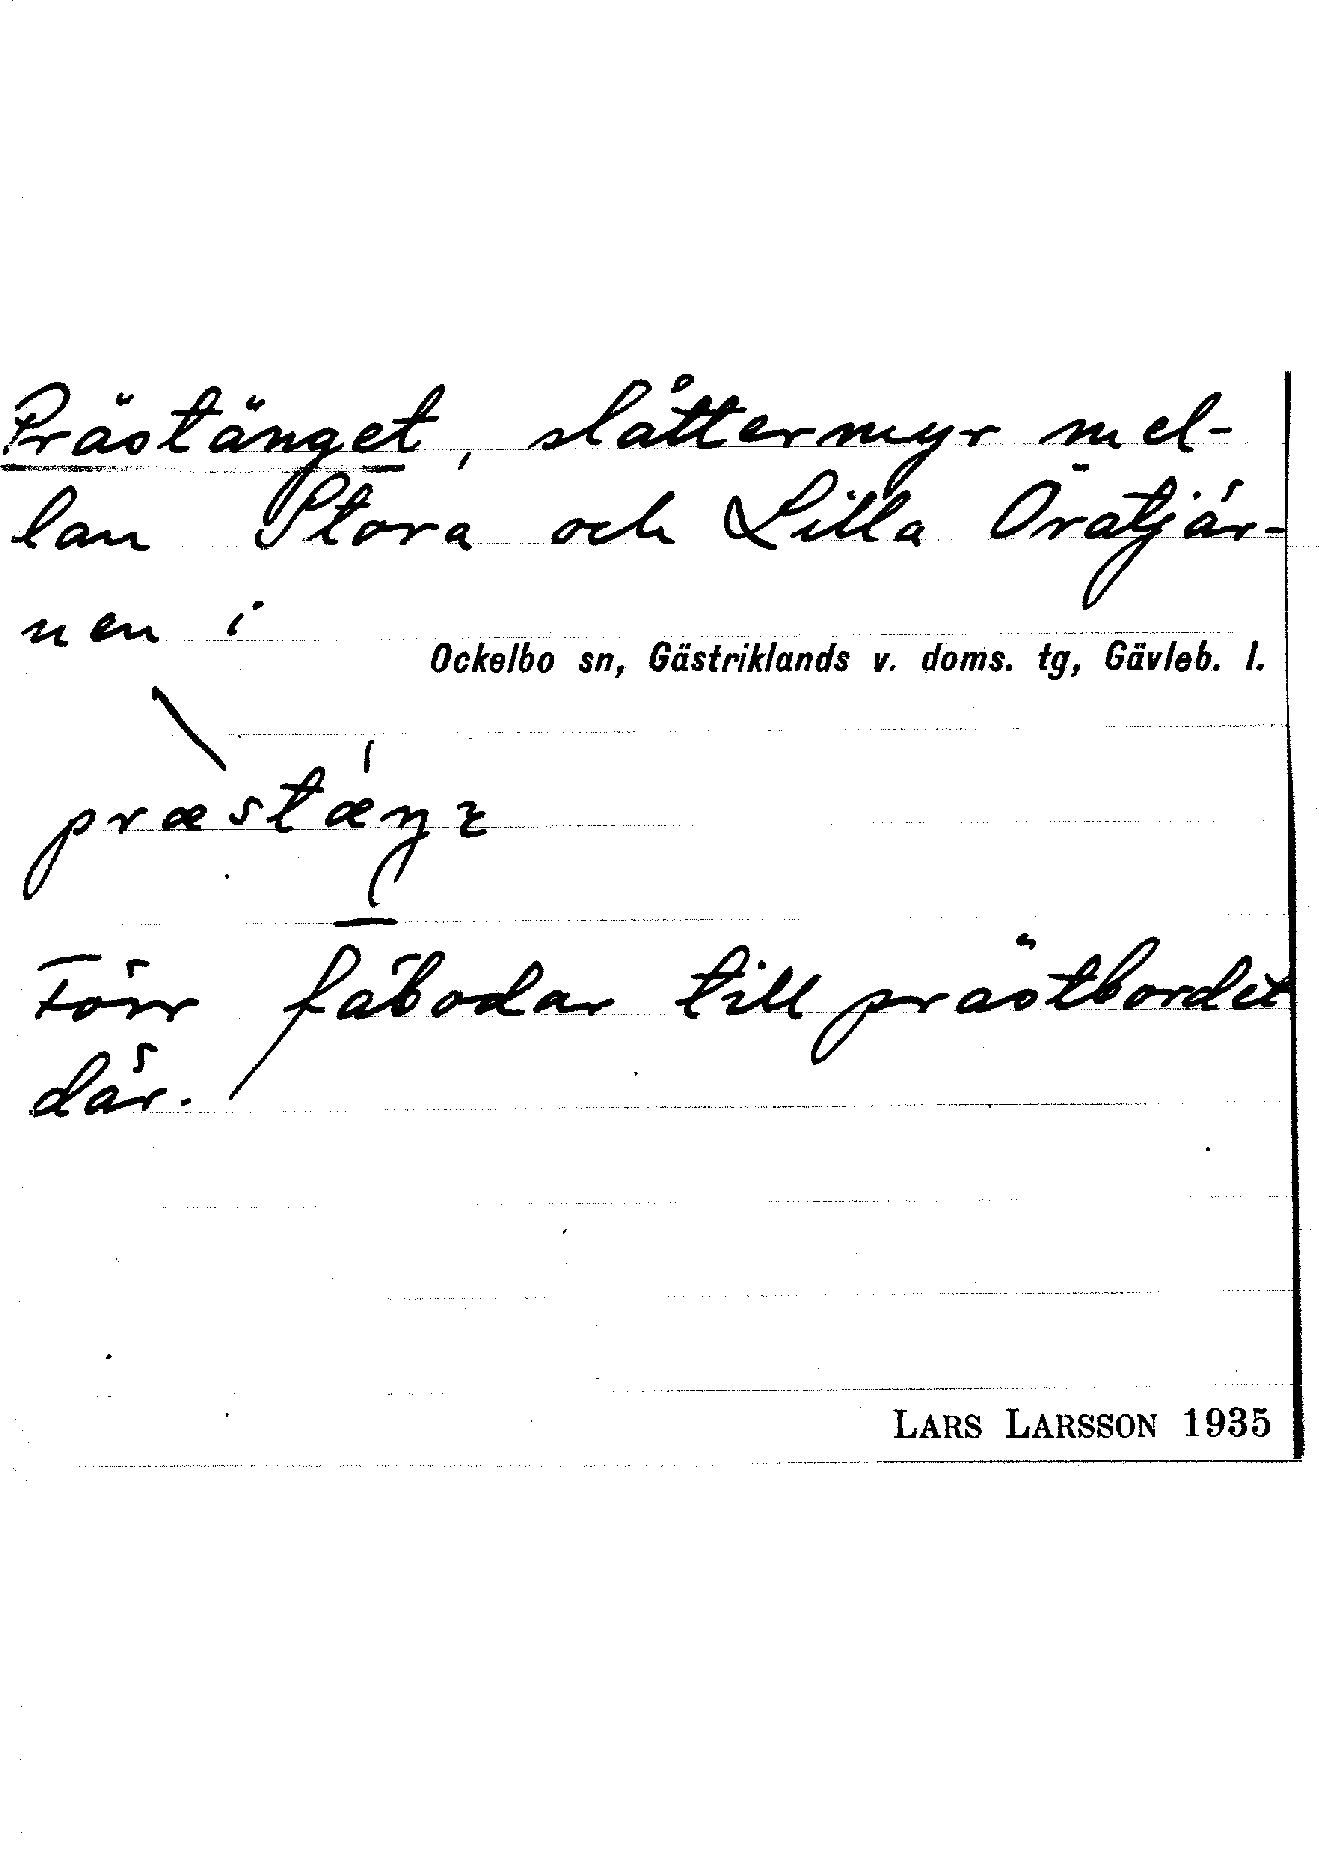 Prästänget, slåttermyr mel-
lan Stora och Lilla Öratjär-
nen i
Ockelbo sn, Gästriklands v. doms. tg, Gävleb. l.
præstæŋɛ
Förr fäbodar till prästbordet
där.
LARS LARSSON 1935